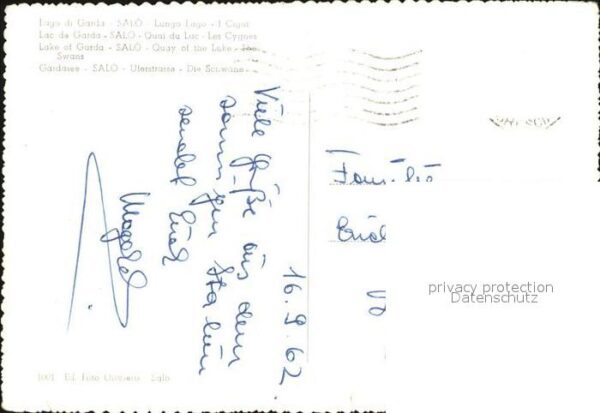 Lago di Garda - SALÒ - Lungo Lago - I Cigni
Lac de Garda - SALÒ - Quai du Lac - Les Cygnes
Lake of Garda - SALÒ - Quay of the Lake - The
Swans
Gardasee - SALÒ - Uferstrasse - Die Schwäne
16.9.62
Viele Grüße aus dem
sonnigen Italien
sendet Euch
Familie
privacy protection
Datenschutz
1001 Ed. Foto Salò